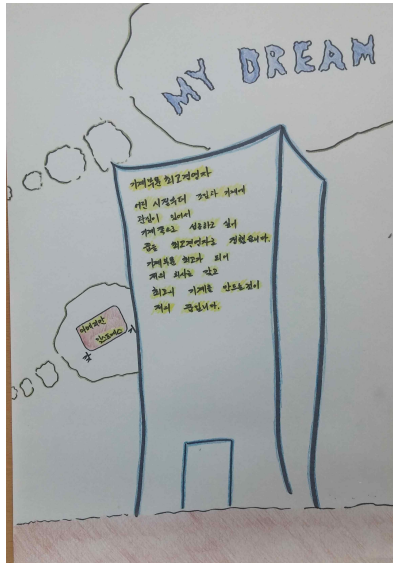 MY DREAM
기계부문 최고경영자
어린 시절부터 조립과 기계에
관심이 있어서
기계 쪽으로 성공하고 싶어
꿈을 최고경영자로 정했습니다.
기계부문 최고가 되어
저의 회사를 갖고
최고의 기계를 만드는것이
저의 꿈입니다.